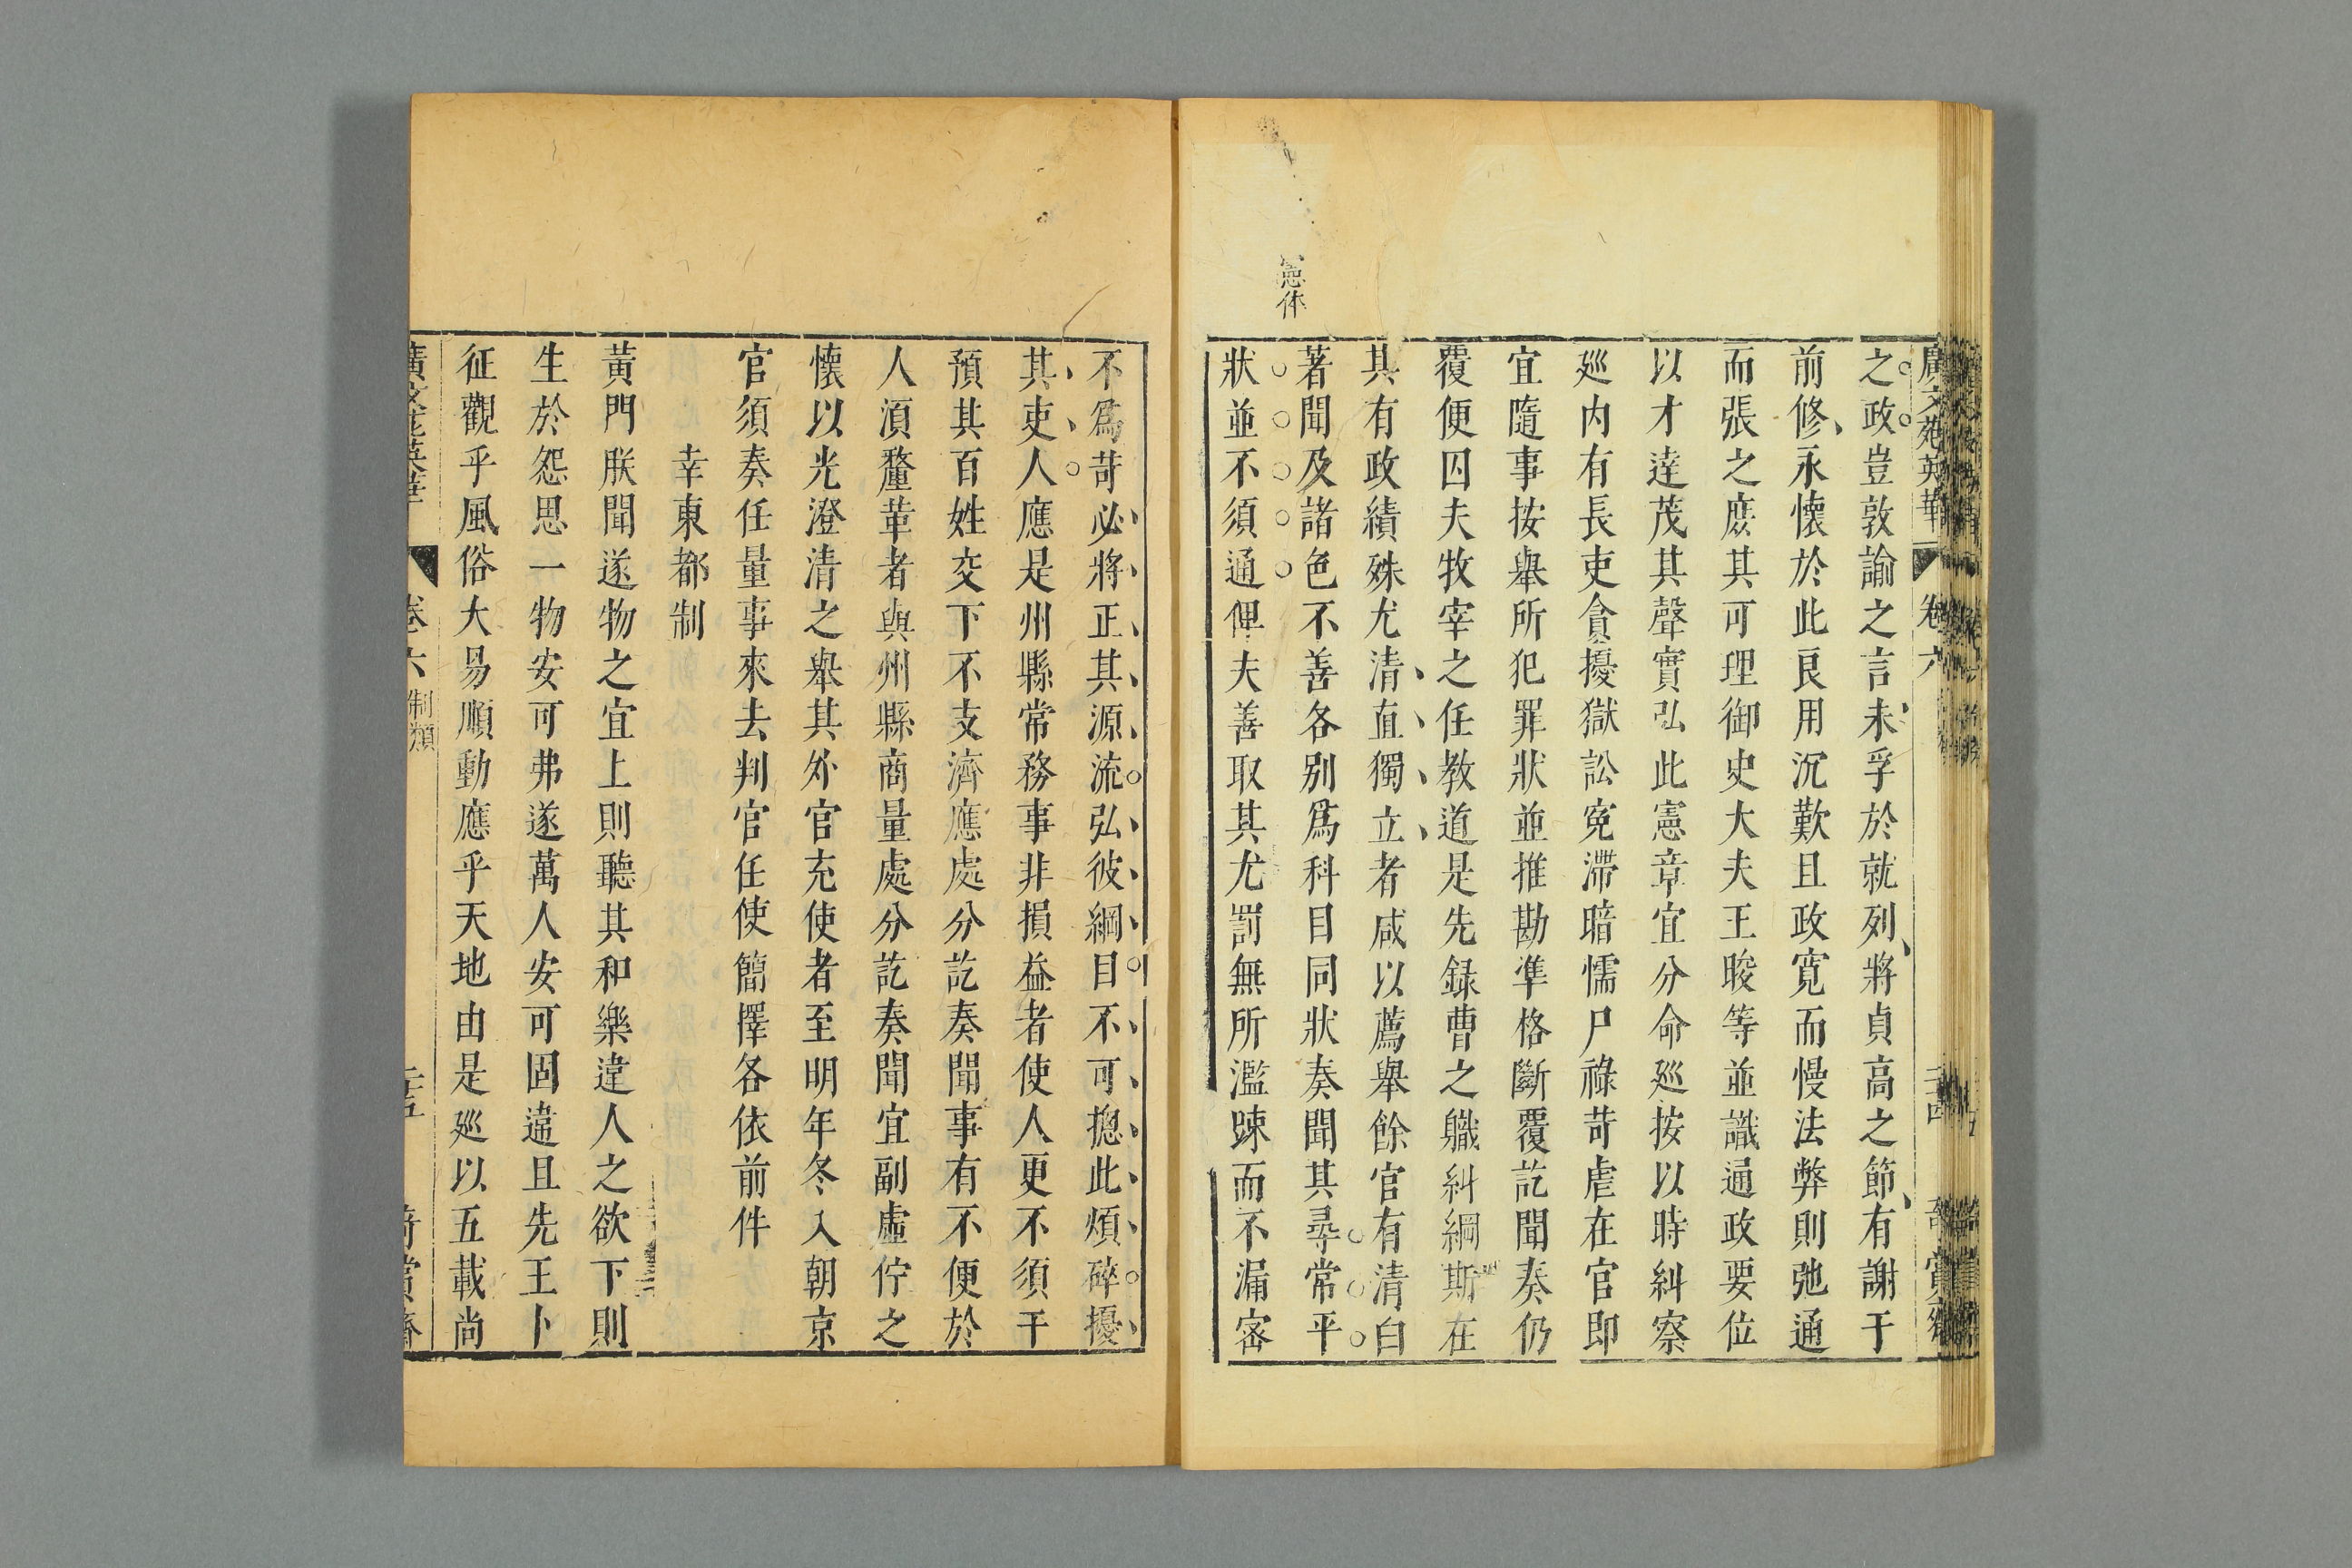 廣文苑英華 卷六
之政豈敦諭之言未孚於就列將貞高之節有謝于
前修永懷於此良用沉歎且政寬而慢法弊則弛通
而張之庶其可理御史大夫王晙等並識通政要位
以才達茂其聲實弘此憲章宜分命廵按以時糾察
廵内有長吏貪擾獄訟寃滯暗懦尸祿苛虐在官即
宜隨事按舉所犯罪狀並推勘準格斷覆訖聞奏仍
覆便囚夫牧宰之任教道是先録曹之軄糾綱斯在
其有政績殊尤清直獨立者咸以薦舉餘官有清白
著聞及諸色不善各别爲科目同狀奏聞其尋常平
狀並不須通俾夫善取其尤罰無所濫踈而不漏宻
不爲苛必將正其源流弘彼綱目不可揔此煩碎擾
其吏人應是州縣常務事非損益者使人更不須干
預其百姓交下不支濟應處分訖奏聞事有不便於
人須釐革者與州縣商量處分訖奏聞宜副虛佇之
懷以光澄清之舉其外官充使者至明年冬入朝京
官須奏任量事來去判官任使簡擇各依前件
幸東都制
黃門朕聞遂物之宜上則聽其和樂違人之欲下則
生於怨思一物安可弗遂萬人安可固違且先王卜
征觀乎風俗大易順動應乎天地由是廵以五載尚
廣文苑英華 卷六 制類